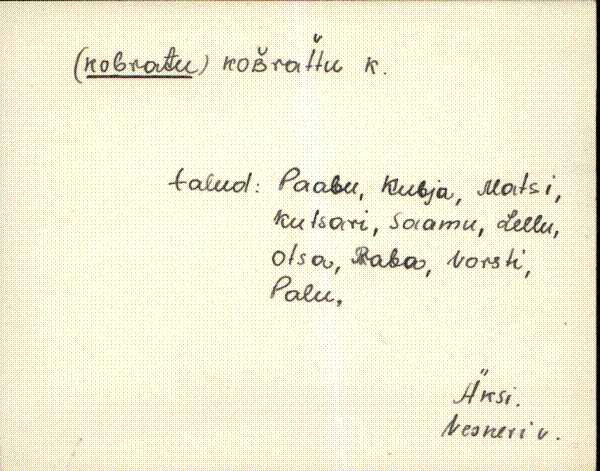 (kobratu) kob̆rat̆t̆u k.
talud: Paabu, Kubja, Matsi,
Kutsari, Saamu, Lellu,
Otsa, Raba, Vorsti,
Palu,
Äksi.
Vesneri v.